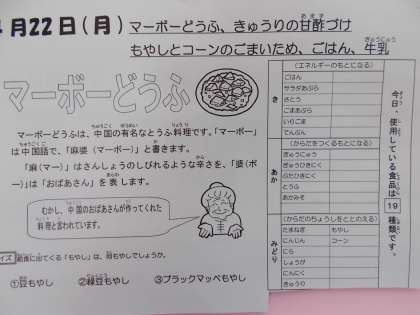 月22日(月) マーボーどうふ、きゅうりの甘酢づけ
もやしとコーンのごまいため、ごはん、牛乳
マーボーどうふ
マーボーどうふは、中国の有名なとうふ料理です。「マーボー」
は中国語で、「麻婆(マーボー)」と書きます。
「麻(マー)」はさんしょうのしびれるような辛さを、「婆(ボ
ー)」は「おばあさん」を表します。
むかし、中国のおばあさんが作ってくれた
料理と言われています。
イズ 給食に出てくる「もやし」は、何もやしでしょうか。
①豆もやし ②緑豆もやし ③ブラックマッペもやし
き
(エネルギーのもとになる)
ごはん
サラダあぶら
さとう
ごまあぶら
いりごま
でんぷん
あか
(からだをつくるもとになる)
ぎゅうにゅう
ぎゅうひきにく
ぶたひきにく
とうふ
あかみそ
みどり
(からだのちょうしをととのえる)
たまねぎ もやし
にんじん コーン
にら
しょうが
にんにく
きゅうり
今日、使用している食品は
19
種類です。